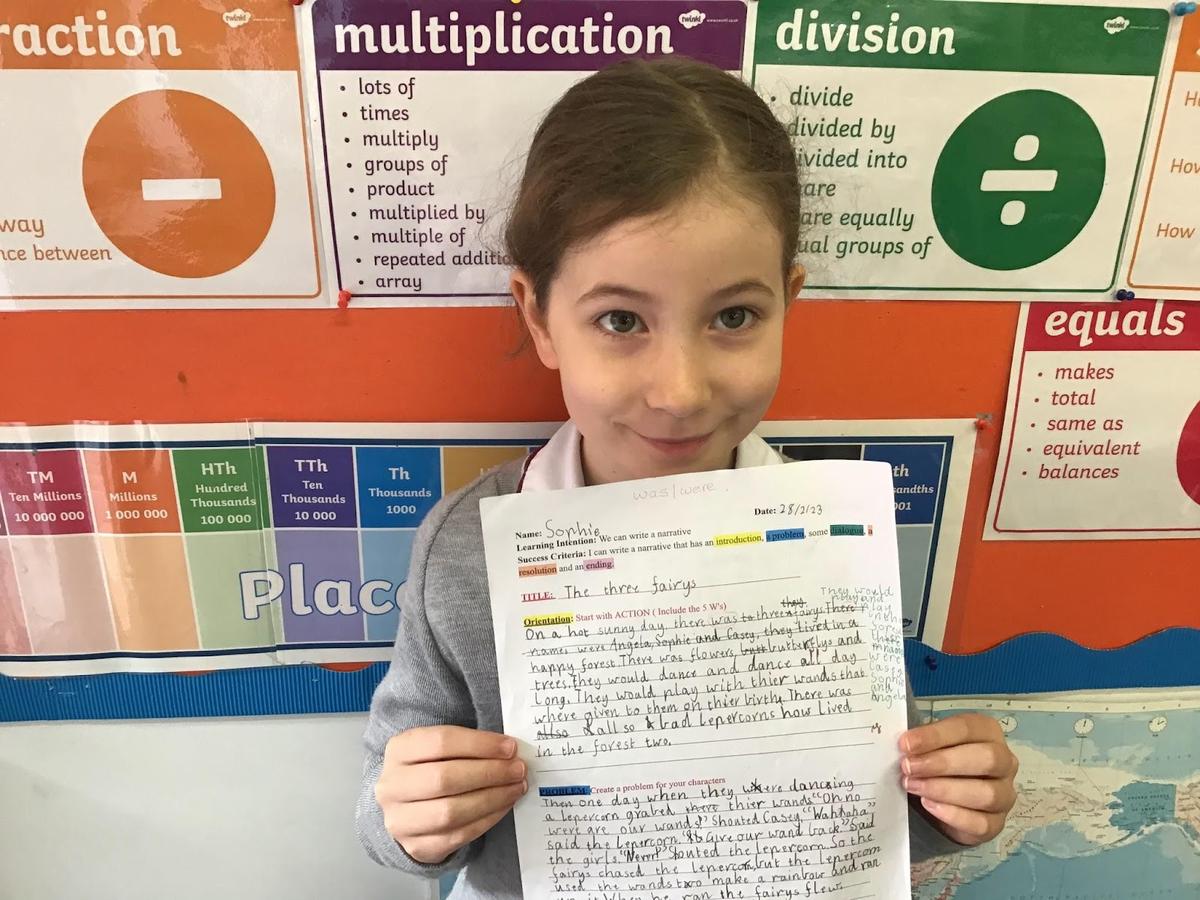 raction
twinkl
way
nce between
multiplication
twinkl
• lots of
• times
• multiply
• groups of
• product
• multiplied by
• multiple of
• repeated additio
• array
division
twinkl
• divide
divided by
ivided into
are
are equally
ual groups of
How
How
equals
• makes
• total
• same as
• equivalent
• balances
TM
Ten Millions
10 000 000
M
Millions
1 000 000
HTh
Hundred
Thousands
100 000
TTh
Ten
Thousands
10 000
Th
Thousands
1000
th
sandths
001
Place
was/were.
Date: 28/2/23
Name: Sophie
Learning Intention: We can write a narrative
Success Criteria: I can write a narrative that has an introduction, a problem, some dialogue, a
resolution and an ending.
TITLE: The three fairys
Orientation: Start with ACTION ( Include the 5 W's)
On a hot sunny day there was to three fairys. There
names were Angela, Sophie and Casey, they lived in a
happy forest. There was flowers, butt butterflys and
trees, they would dance and dance all day
long. They would play with thier wands that
where given to them on thier birthy. There was
also allso bad lepercorns how lived
in the forest two.
They would
play
in the
forest
there
were
Casey
Sophie
and
angela
PROBLEM: Create a problem for your characters
Then one day when they were dancing
a lepercorn grabed there thier wands "Oh no
were are our wands!" shouted Casey. "Wahhaha"
said the lepercorn. Give our wand back" Said
the girls. "Never!" Shouted the lepercorn. So the
fairys chased the lepercorn, but the lepercorn
used the wands two make a rainbow and ran
up it. When he ran the fairys flew